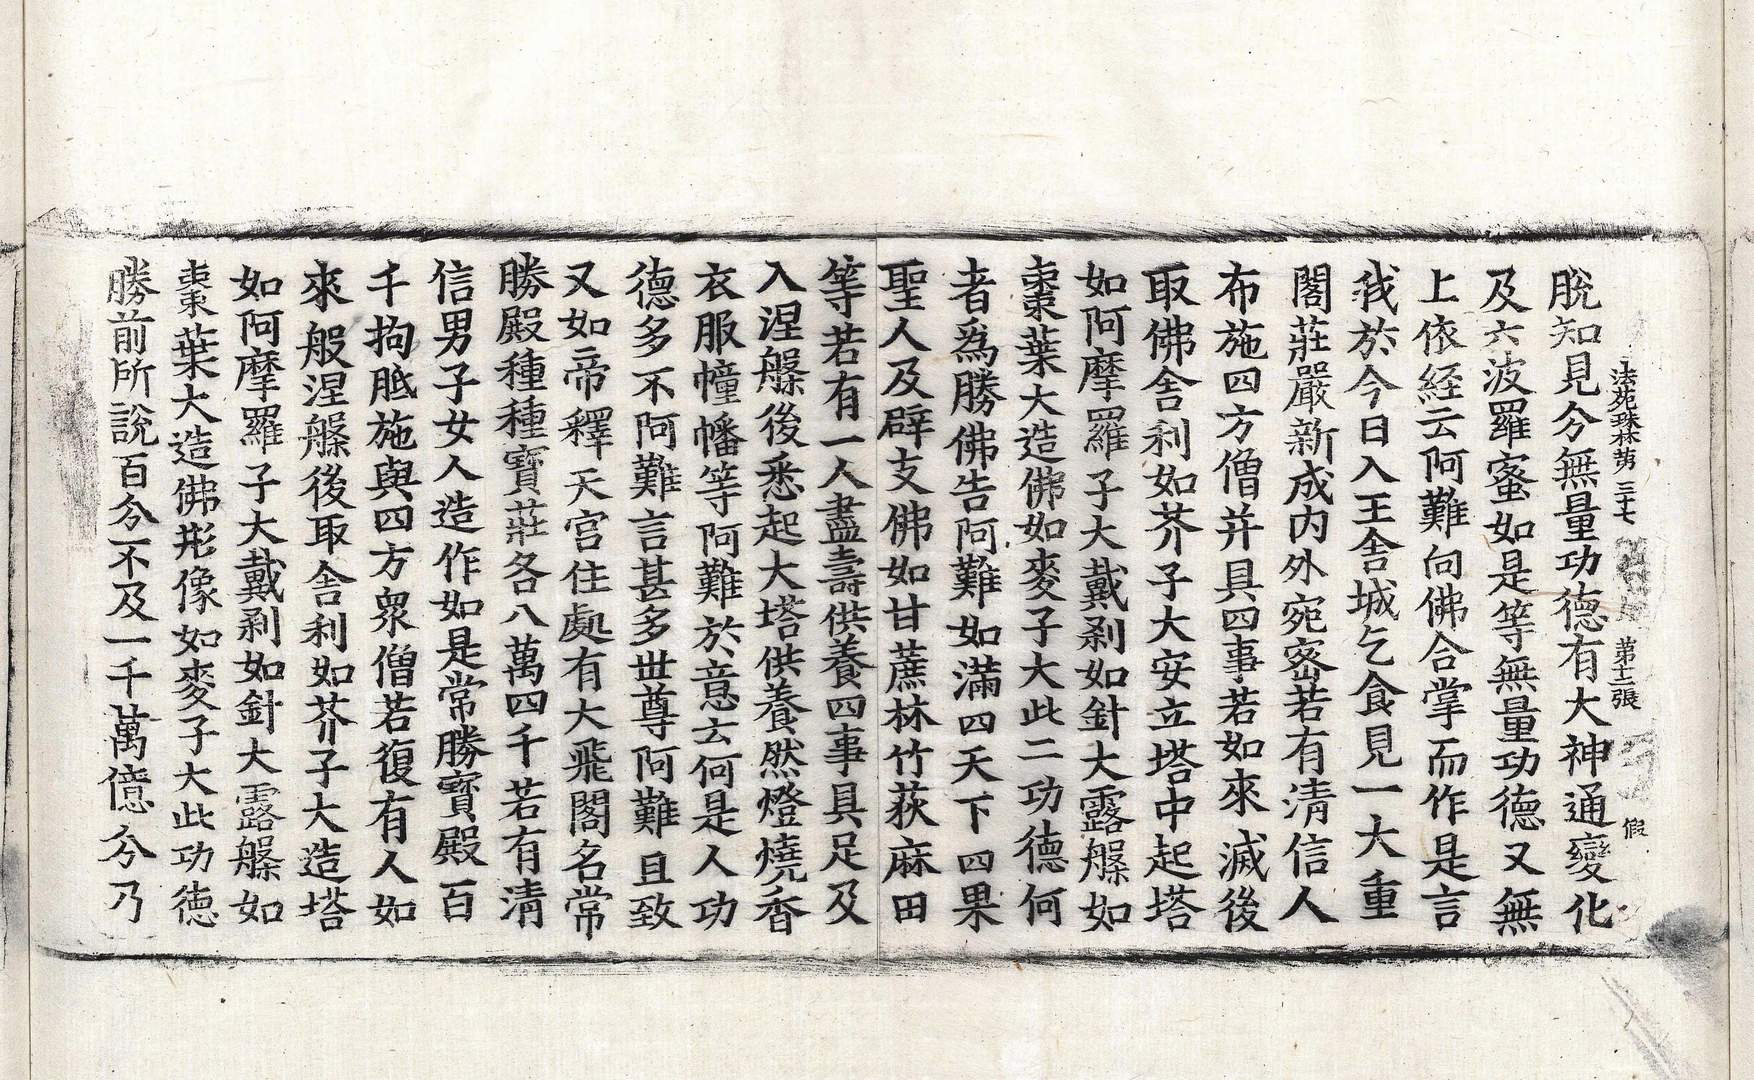 法苑珠林第三十七 第十二張 假
脫知見分無量功德有大神通變化
及六波羅蜜如是等無量功德又無
上依經云阿難向佛合掌而作是言
我於今日入王舍城乞食見一大重
閣莊嚴新成內外宛密若有清信人
布施四方僧并具四事若如來滅後
取佛舍利如芥子大安立塔中起塔
如阿摩羅子大戴剎如針大露槃如
棗葉大造佛如麥子大此二功德何
者為勝佛告阿難如滿四天下四果
聖人及辟支佛如甘蔗林竹荻麻田
等若有一人盡壽供養四事具足及
入涅槃後悉起大塔供養然燈燒香
衣服幢幡等阿難於意云何是人功
德多不阿難言甚多世尊阿難且致
又如帝釋天宮住處有大飛閣名常
勝殿種種寶莊各八萬四千若有清
信男子女人造作如是常勝寶殿百
千拘胝施與四方眾僧若復有人如
來般涅槃後取舍利如芥子大造塔
如阿摩羅子大戴剎如針大露槃如
棗葉大造佛形像如麥子大此功德
勝前所說百分不及一千萬億分乃